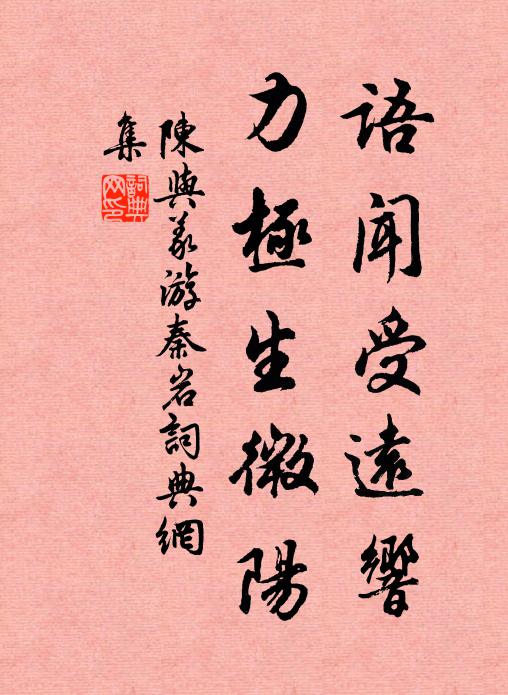 語聞受遠響
力極生微陽
陳與義游秦岩詞典網
集
詞典
网印